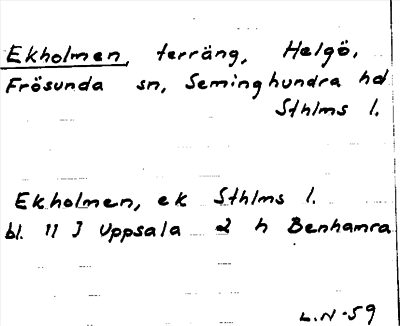 Ekholmen, terräng, Helgö,
Frösunda sn, Seminghundra hd
Sthlms l.
Ekholmen, ek Sthlms l.
bl. 11 I Uppsala 2 h Benhamra
L.N-59